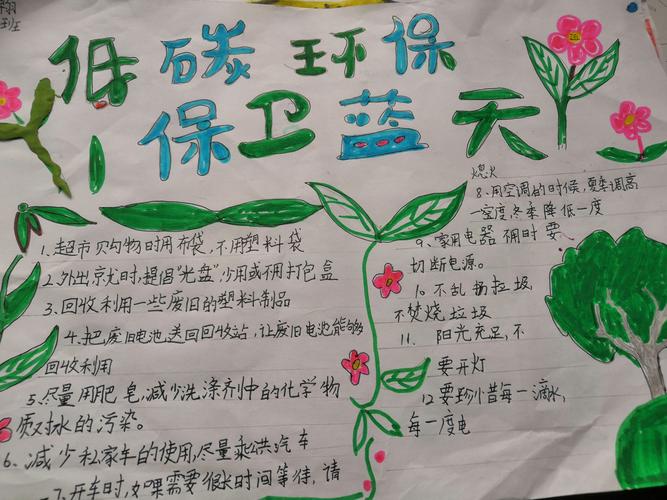 班
低碳环保
保卫蓝天
1、超市购物时用布袋，不用塑料袋
2、外出就时，提倡"光盘"少用或不用打包盒
3、回收利用一些废旧的塑料制品
4、把废旧电池送回回收站，让废旧电池能够
回收利用
5、尽量用肥皂，减少洗涤剂中的化学物
质对水的污染。
6、减少私家车的使用，尽量乘公共汽车
7、开车时，如果需要很长时间等待，请
熄火
8、用空调的时候，夏季调高
一度，冬季降低一度
9、家用电器 不用时要
切断电源。
10、不乱扔垃圾，
不焚烧垃圾
11、阳光充足，不
要开灯
12要珍惜每一滴水，
每一度电